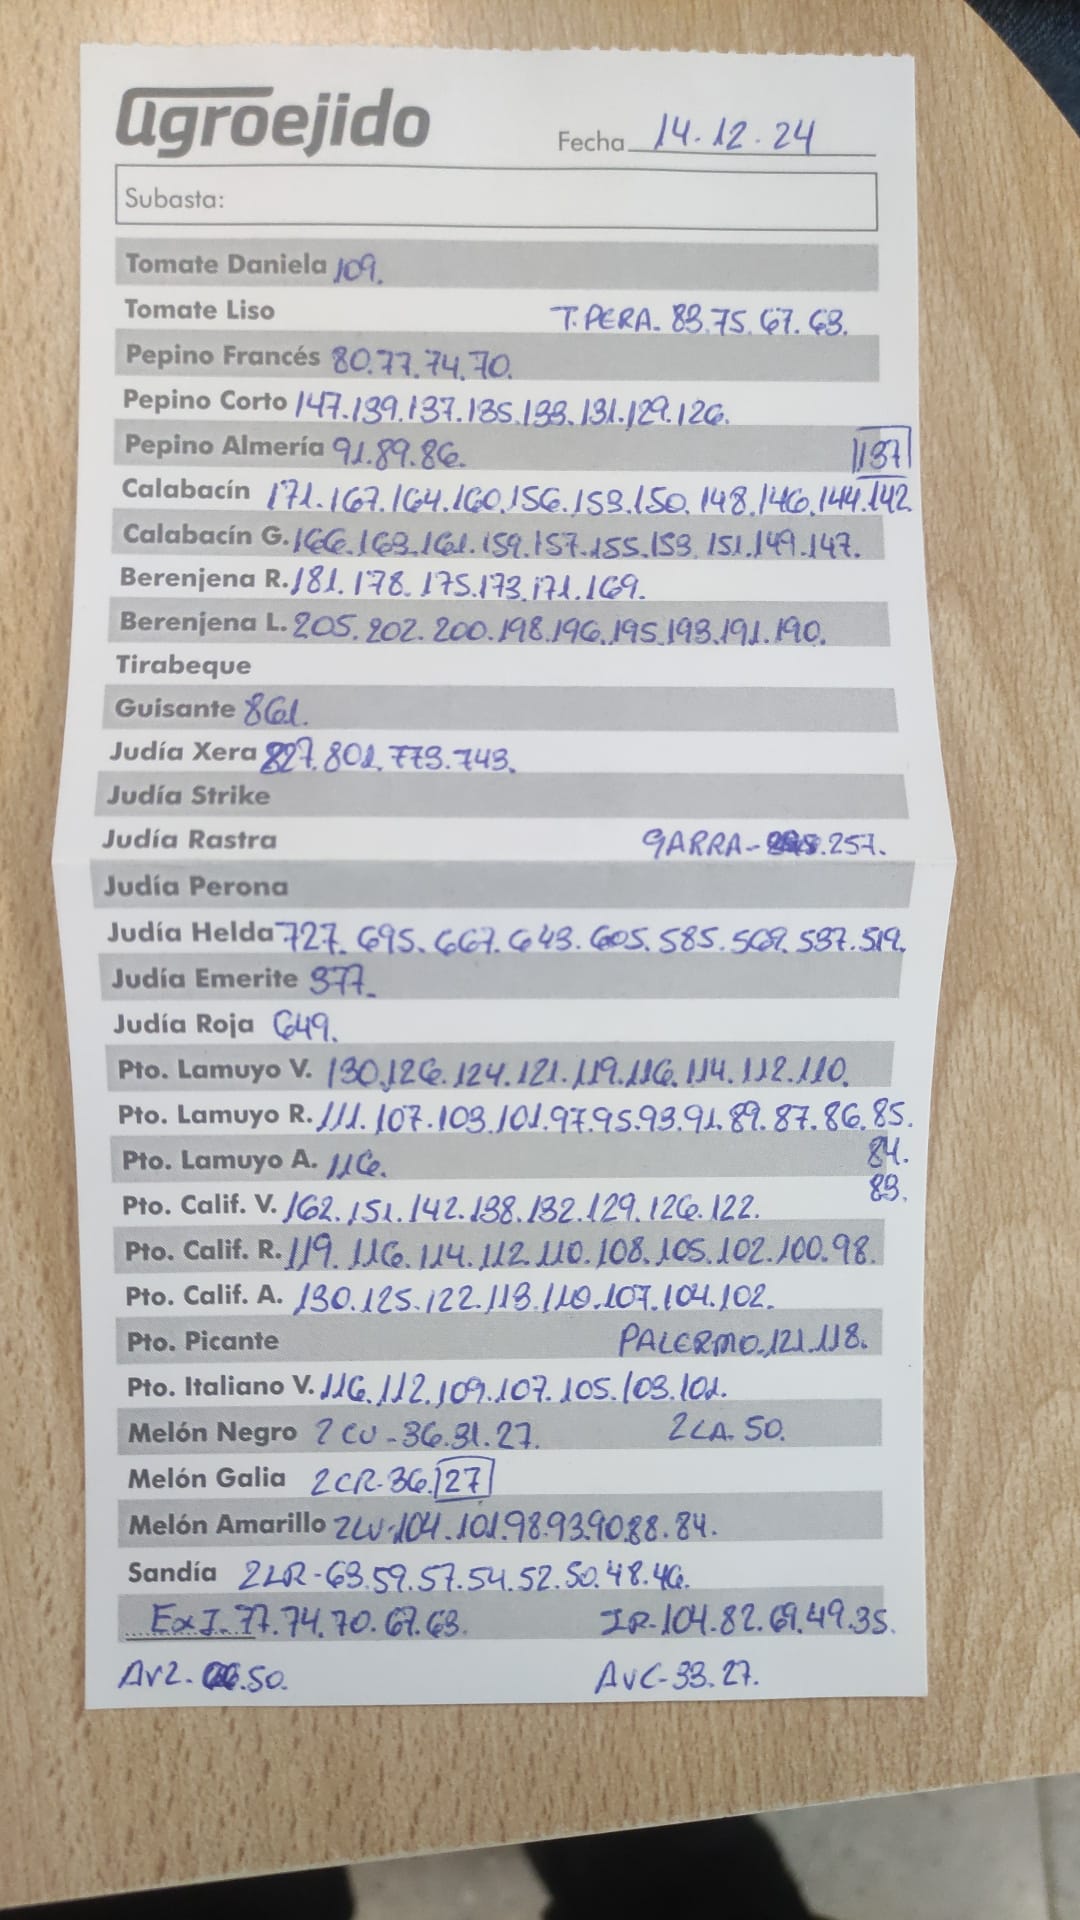 agroejido
Fecha 14.12.24
Subasta:
Tomate Daniela 109.
Tomate Liso T.PERA. 83.75.67.63.
Pepino Francés 80.77.74.70.
Pepino Corto 147.139.137.135.133.131.129.126.
Pepino Almería 91.89.86. 137
Calabacín 171.167.164.160.156.153.150.148.146.144.142
Calabacín G. 166.163.161.159.157.155.153.151.149.147.
Berenjena R. 181.178.175.173.171.169.
Berenjena L. 205.202.200.198.196.195.193.191.190.
Tirabeque
Guisante 861.
Judía Xera 827.801.773.743.
Judía Strike
Judía Rastra GARRA- .257.
Judía Perona
Judía Helda 727.695.667.643.605.585.569.537.519.
Judía Emerite 377.
Judía Roja 649.
Pto. Lamuyo V. 130.126.124.121.119.116.114.112.110.
Pto. Lamuyo R. 111.107.103.101.97.95.93.91.89.87.86.85.
Pto. Lamuyo A. 116. 84.
83.
Pto. Calif. V. 162.151.142.138.132.129.126.122.
Pto. Calif. R. 119.116.114.112.110.108.105.102.100.98.
Pto. Calif. A. 130.125.122.113.110.107.104.102.
Pto. Picante PALERMO.121.118.
Pto. Italiano V. 116.112.109.107.105.103.101.
Melón Negro 2CU-36.31.27. 2CA.50.
Melón Galia 2CR-36.27
Melón Amarillo 2LV-104.101.98.93.90.88.84.
Sandía 2LR-63.59.57.54.52.50.48.46.
ExJ.77.74.70.67.63. IR-104.82.69.49.35.
Av2- .50. AvC-33.27.